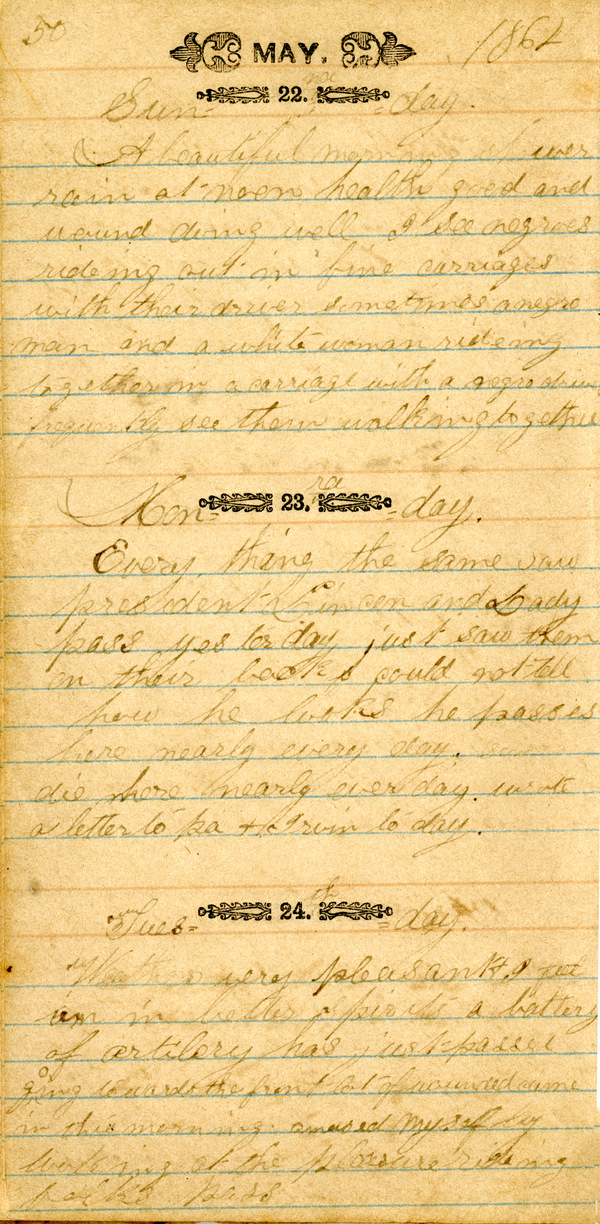 50 MAY. 1864
Sun- 22. nd -day.
A beautiful morning shower
rain at noon health good and
wound doing well I see negroes
rideing out in fine carriages
with their driver sometimes a negro
man and a white woman rideing
together in a carriage with a negro driver
frequently see them walking together
Mon- 23. rd -day.
Every thing the same saw
president Lincon and Lady
pass yesterday just saw them
on their backs could not tell
how he looks he passes
here nearly every day.
die here nearly ever day. wrote
a letter to pa & Irvin to day.
Tues- 24. th -day.
Weather very pleasant. I
am in better spirits a battery
of artilery has just passed
going towards the front lot of wounded came
in this morning amused myself by
looking at the pleasure rideing
folks pass